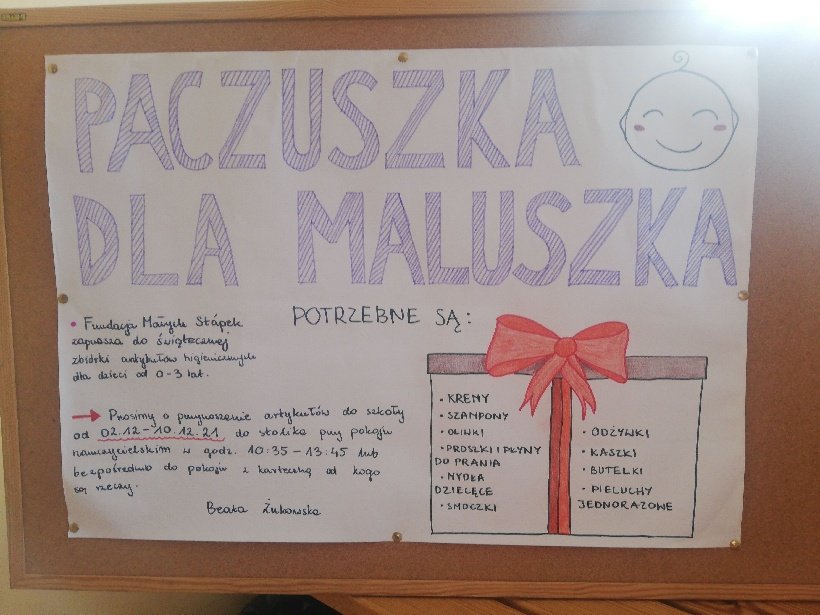 PACZUSZKA
DLA MALUSZKA
• Fundacja Małych Stópek
zaprasza do świątecznej
zbiórki artykułów higienicznych
dla dzieci od 0-3 lat.
→ Prosimy o przynoszenie artykułów do szkoły
od 02.12-10.12.21 do stolika przy pokoju
nauczycielskim w godz. 10:35-13:45 lub
bezpośrednio do pokoju z karteczką od kogo
są rzeczy.
Beata Żukowska
POTRZEBNE SĄ:
• KREMY
• SZAMPONY
• OLIWKI
• PROSZKI I PŁYNY
DO PRANIA
• MYDŁA
DZIECIĘCE
• SMOCZKI
• ODŻYWKI
• KASZKI
• BUTELKI
• PIELUCHY
JEDNORAZOWE